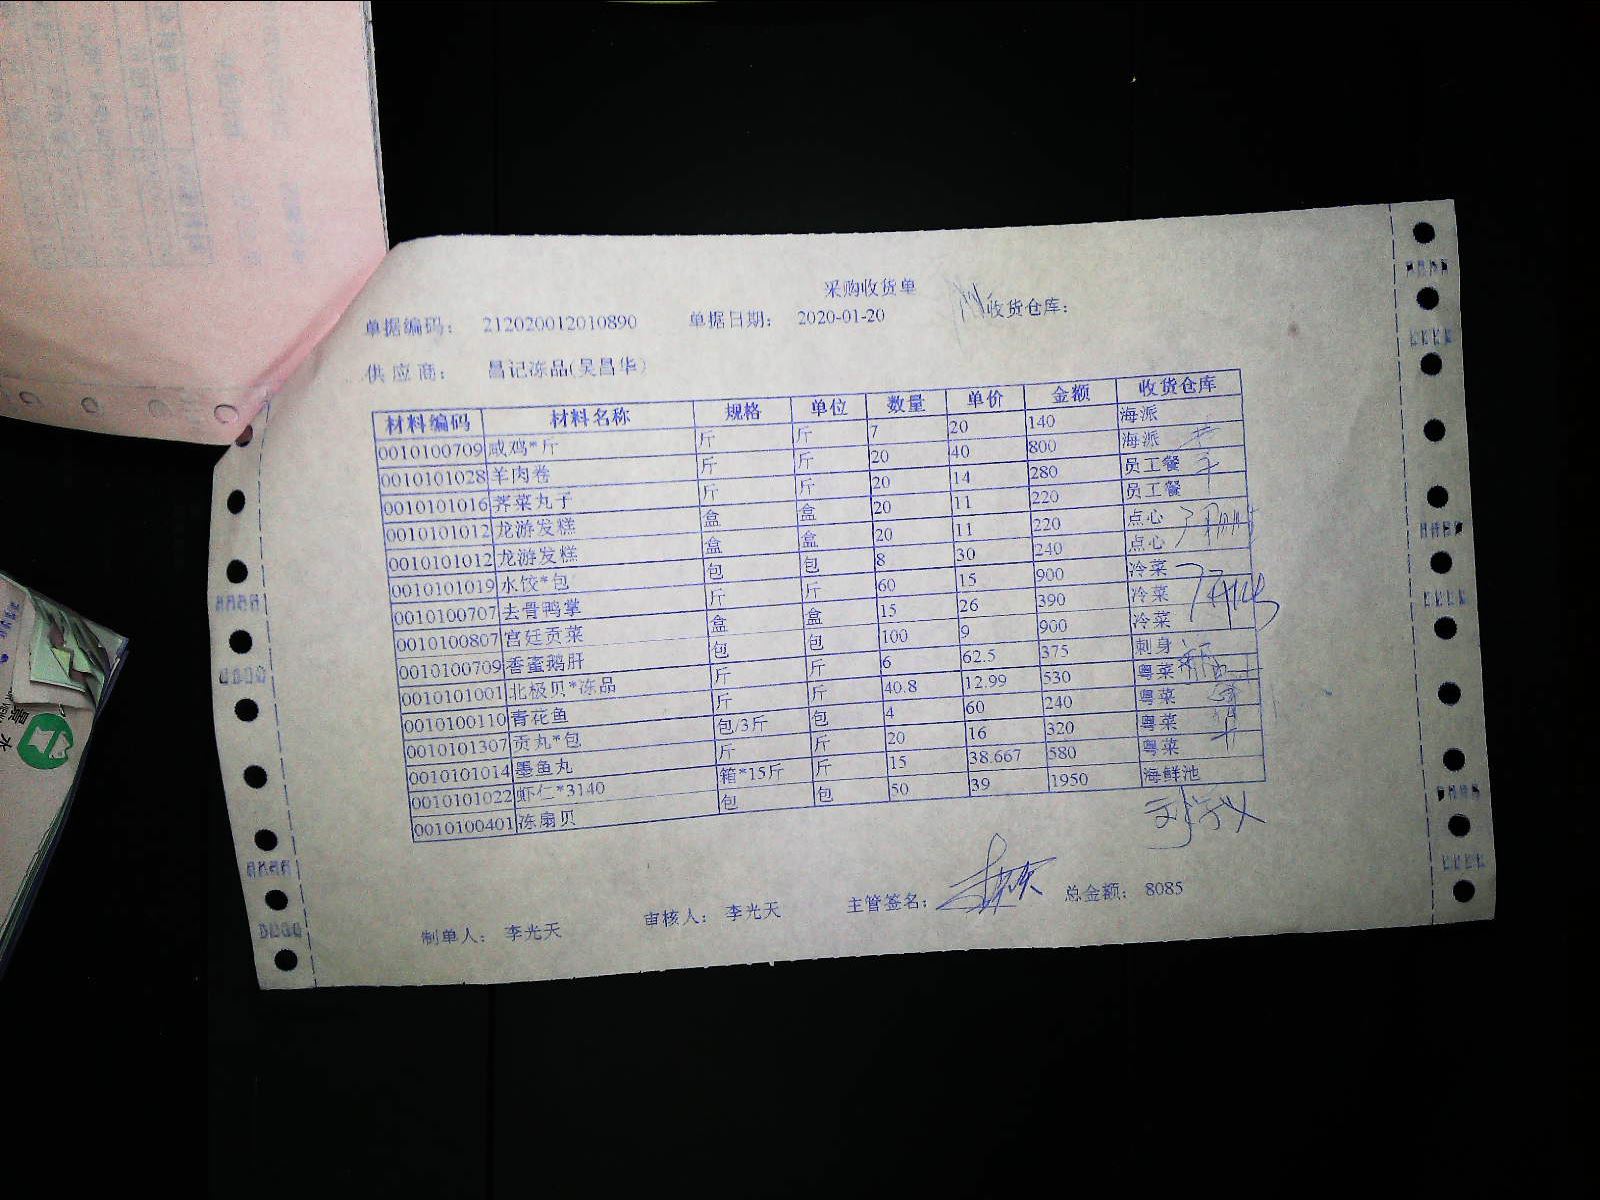 采购收货单
单据编码： 212020012010890 单据日期： 2020-01-20 收货仓库：
供应商： 昌记冻品(吴昌华)
材料编码 材料名称 规格 单位 数量 单价 金额 收货仓库
0010100709 咸鸡*斤 斤 斤 7 20 140 海派
0010101028 羊肉卷 斤 斤 20 40 800 海派
0010101016 荠菜丸子 斤 斤 20 14 280 员工餐
0010101012 龙游发糕 盒 盒 20 11 220 员工餐
0010101012 龙游发糕 盒 盒 20 11 220 点心
0010101019 水饺*包 包 包 8 30 240 点心
0010100707 去骨鸭掌 斤 斤 60 15 900 冷菜
0010100807 宫廷贡菜 盒 盒 15 26 390 冷菜
0010100709 香蜜鹅肝 包 包 100 9 900 冷菜
0010101001 北极贝*冻品 斤 斤 6 62.5 375 刺身
0010100110 青花鱼 斤 斤 40.8 12.99 530 粤菜
0010101307 贡丸*包 包/3斤 包 4 60 240 粤菜
0010101014 墨鱼丸 斤 斤 20 16 320 粤菜
0010101022 虾仁*3140 箱*15斤 斤 15 38.667 580 粤菜
0010100401 冻扇贝 包 包 50 39 1950 海鲜池
制单人： 李光天 审核人： 李光天 主管签名： 总金额： 8085